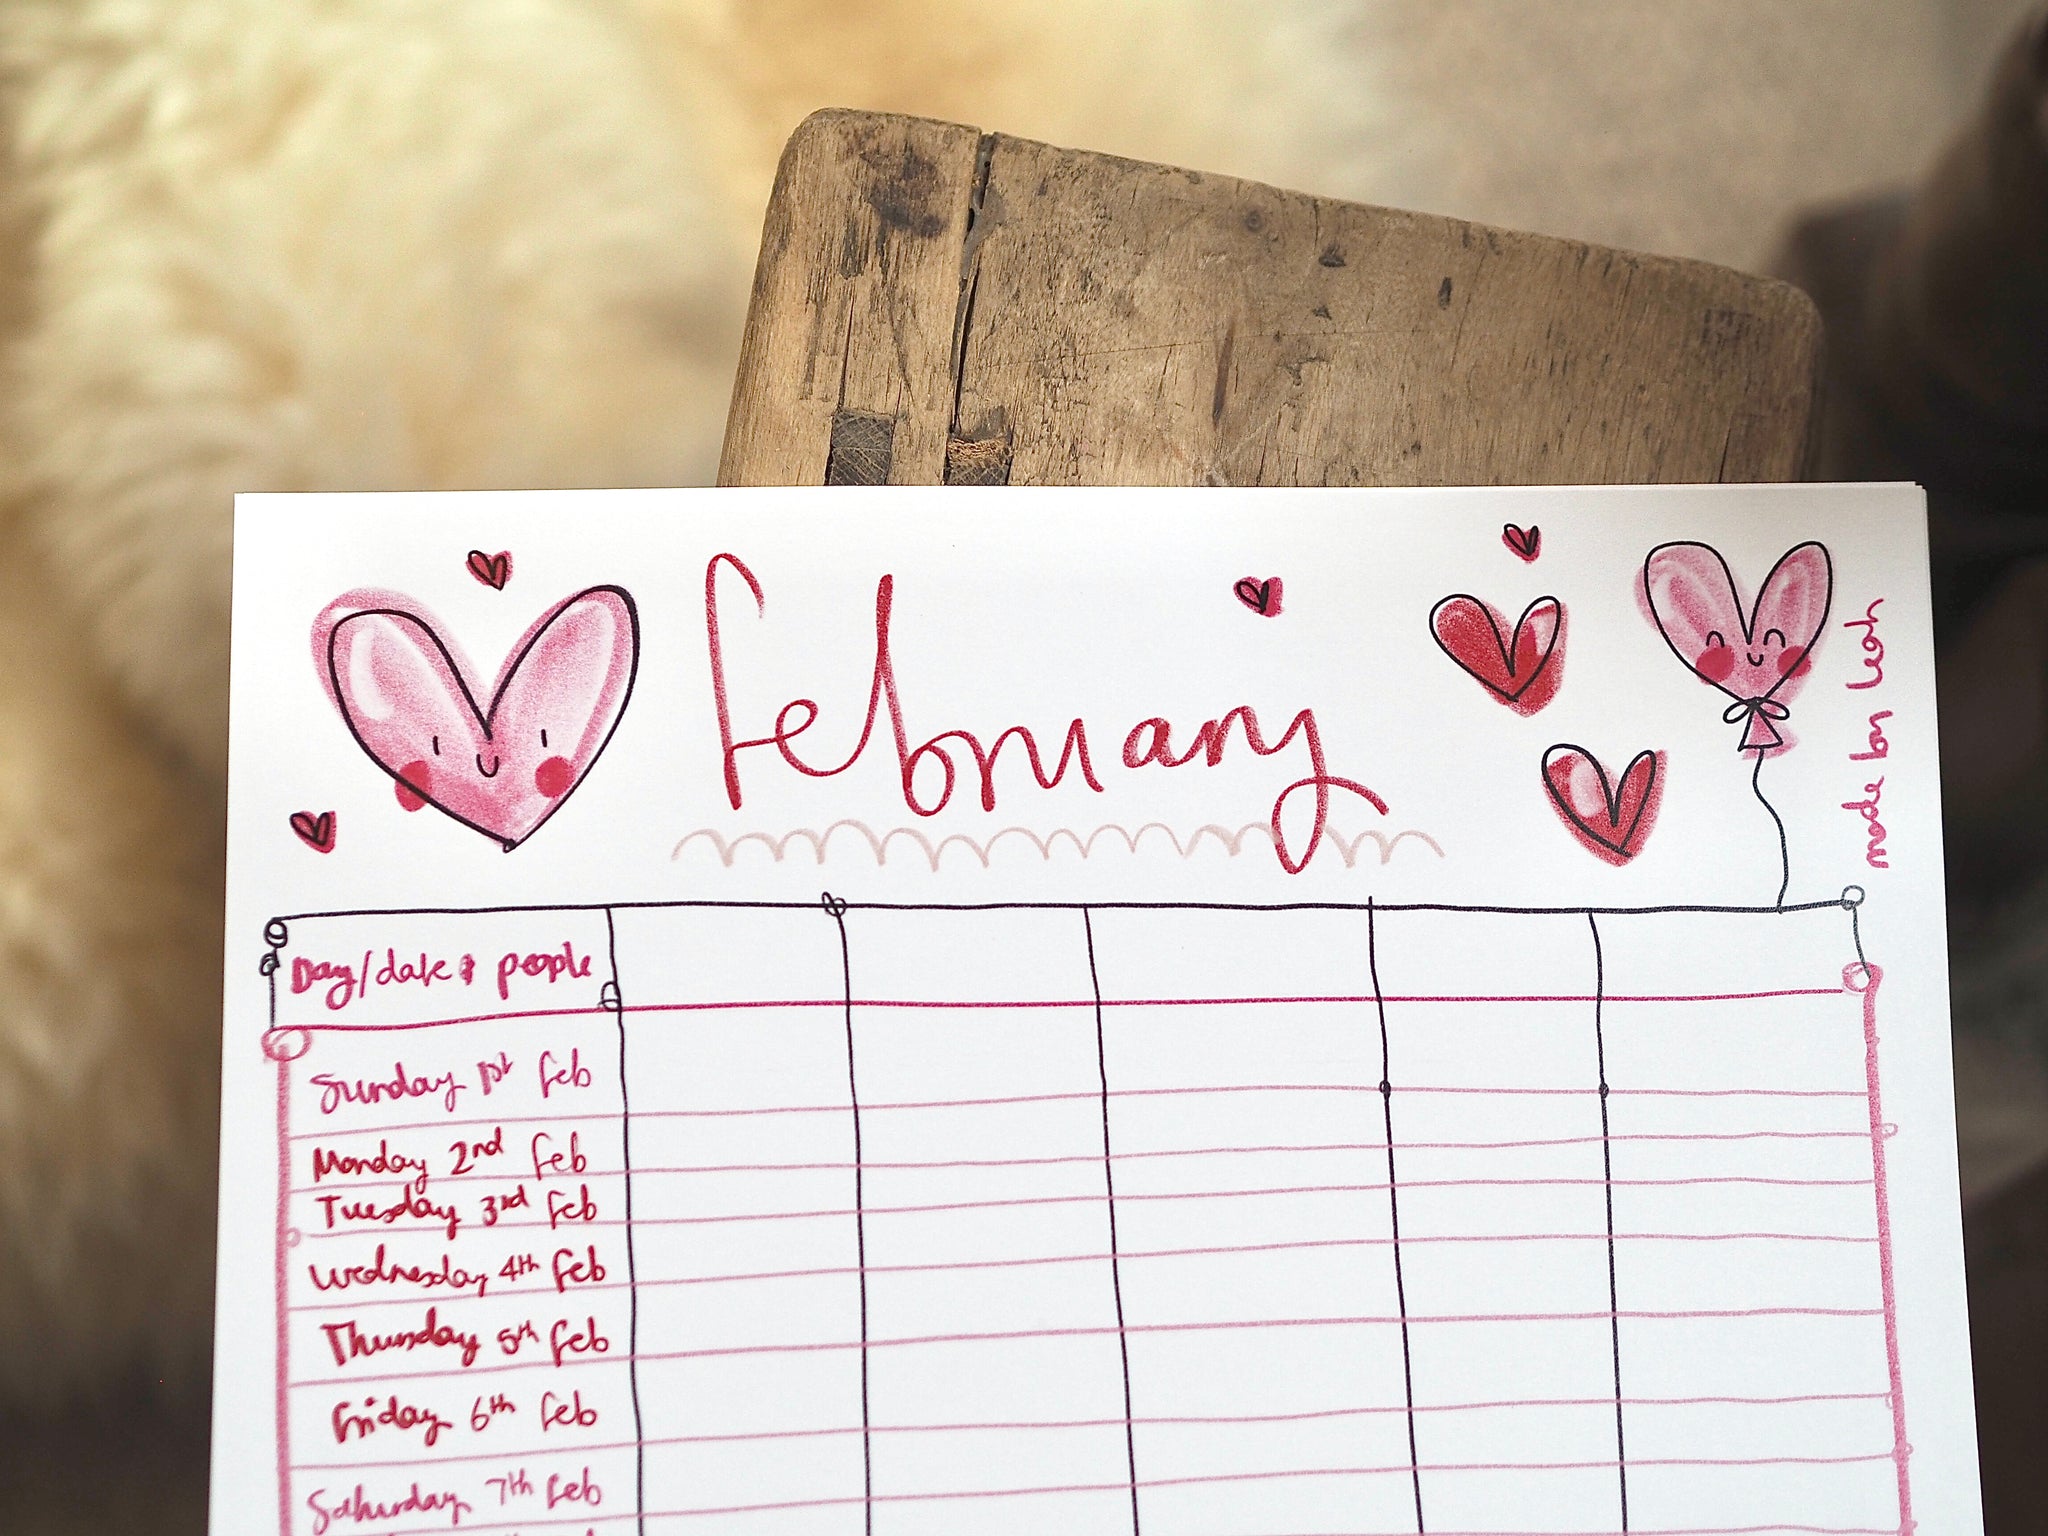 february
made by Leah
Day/date & people
Sunday 1st feb
Monday 2nd feb
Tuesday 3rd feb
Wednesday 4th feb
Thursday 5th feb
Friday 6th feb
Saturday 7th feb